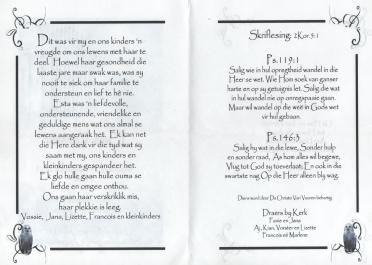 Dit was vir my en ons kinders 'n
vreugde om ons lewens met haar te
deel. Hoewel haar gesondheid die
laaste jare maar swak was, was sy
nooit te siek om haar familie te
ondersteun en lief te hê nie.
Esta was 'n liefdevolle,
ondersteunende, vriendelike en
geduldige mens wat ons almal se
lewens aangeraak het. Ek kan net
die Here dank vir die tyd wat sy
saam met my, ons kinders en
kleinkinders gespandeer het.
Ek glo hulle gaan hulle ouma se
liefde en omgee onthou.
Ons gaan haar verskriklik mis,
haar plekkie is leeg.
Vossie, Jana, Lizette, Francois en kleinkinders
Skriflesing: 2Kor.5:1
Ps.119:1
Salig wie in hul opregtheid wandel in die
Heer se wet. Wie Hom soek van ganser
harte en op sy getuignis let. Salig die wat
in hul wandel nie op ongepaste gaan.
Maar wil wandel op die weë in Gods wet
vir hul gebaan.
Ps.146:3
Salig hy wat in die lewe, Sonder hulp
en sonder raad, As hom alles wil begewe,
Vlug tot God sy toeverlaat; En ook in die
swartste nag Op die Heer alleen bly wag.
Diens word deur Ds Christo Van Vuuren behartig
Draers by Kerk
Fanie en Jana
Aj, Kian, Vorster en Lizette
Francois en Marlene